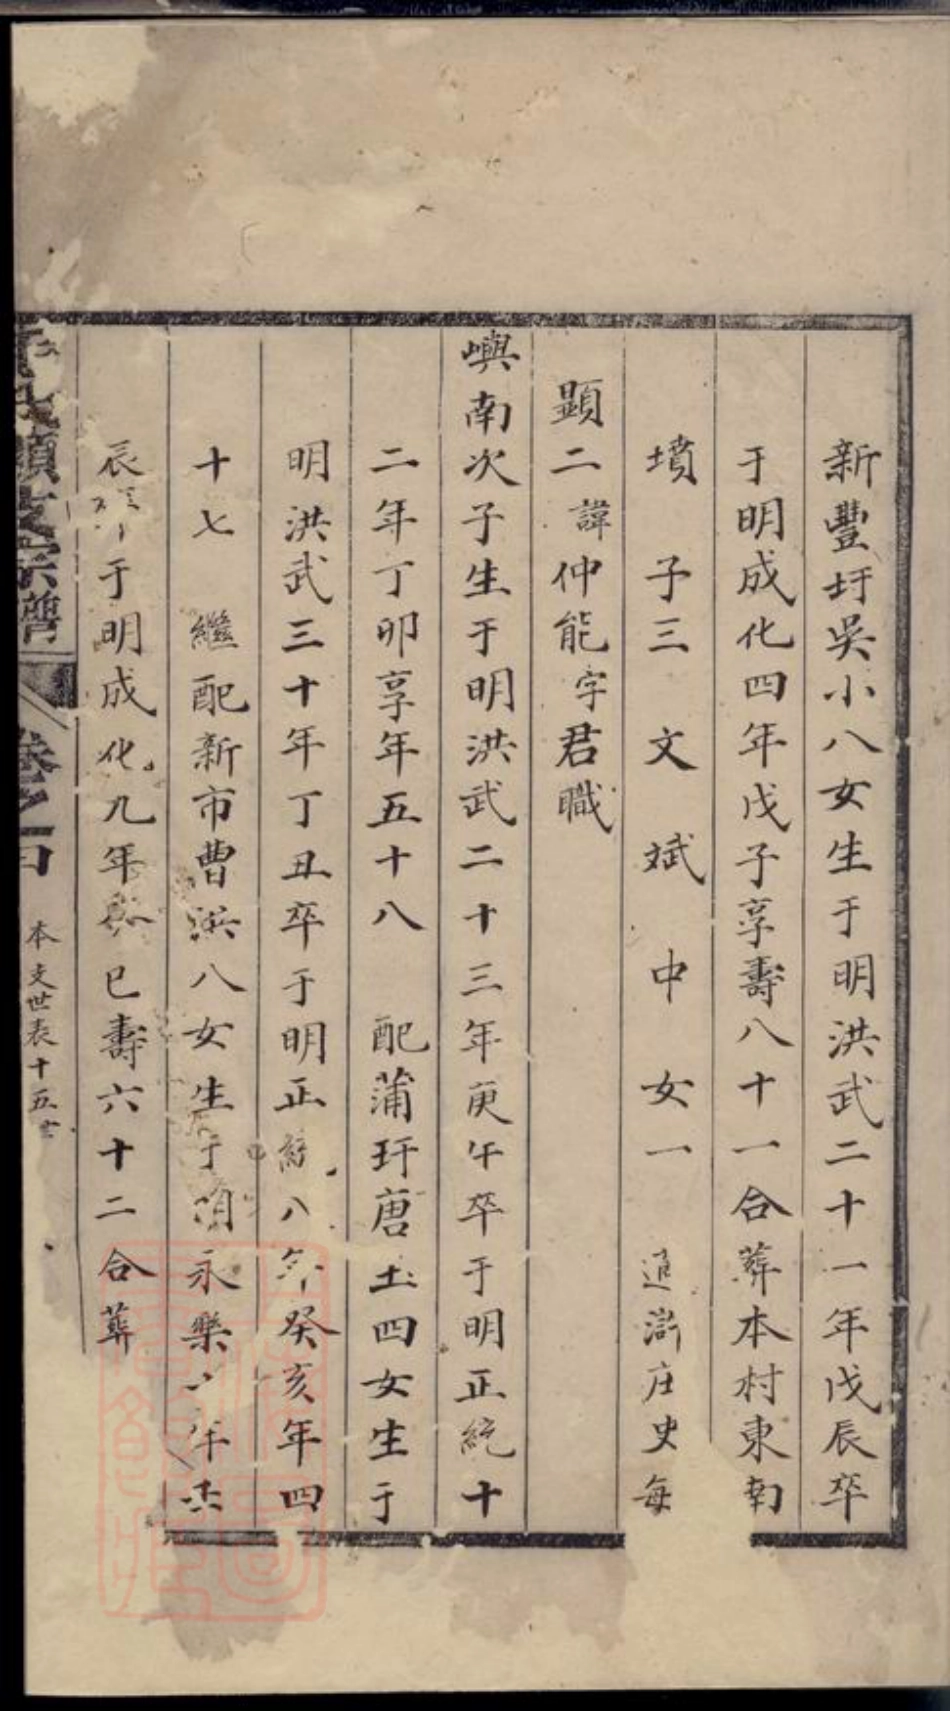 新豐圩吳小八女生于明洪武二十一年戊辰卒
于明成化四年戊子享壽八十一合葬本村東南
墳 子三 文 斌 中 女一 適滸庄史每
顯二諱仲能字君職
嶼南次子生于明洪武二十三年庚午卒于明正統十
二年丁卯享年五十八 配蒲玗唐土四女生于
明洪武三十年丁丑卒于明正統八年癸亥年四
十七 繼配新市曹洪八女生于明永樂年
辰卒于明成化九年癸巳壽六十二合葬
氏顯支宗譜 卷之一 本支世表十五世